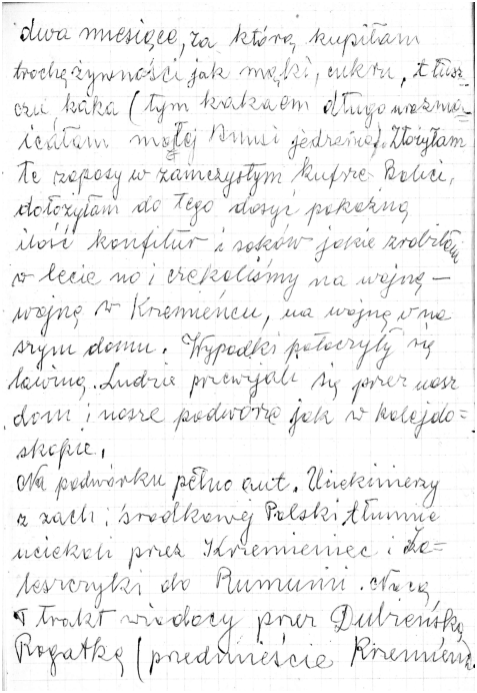 dwa miesiące, za którą kupiłam
trochę żywności jak mąki, cukru, tłusz-
czu, kaka (tym kakaem długo urozma-
icałam małej Bunsi jedzenie). Złożyłam
te zapasy w zamczystym kufrze Babci,
dołożyłam do tego dosyć pokaźną
ilość konfitur i soków jakie zrobiłam
w lecie no i czekaliśmy na wojnę –
wojnę w Krzemieńcu, na wojnę v na
szym domu. Wypadki potoczyły się
lawiną. Ludzie przewijali się przez nasz
dom i nasze podwórze jak w kalejdo=
skopie.
Na podwórku pełno aut. Uciekinierzy
z zach i środkowej Polski tłumnie
uciekali przez Krzemieniec i Za=
leszczyki do Rumunii. Nocą
trakt wiodący przez Dubieńską
Rogatkę (przedmieście Krzemieńca